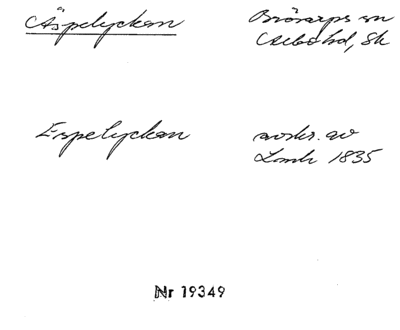 Äspelyckan
Brösarps sn
Albo hd, Sk
Espelyckan
avskr. av
Lantm 1835
Nr 19349